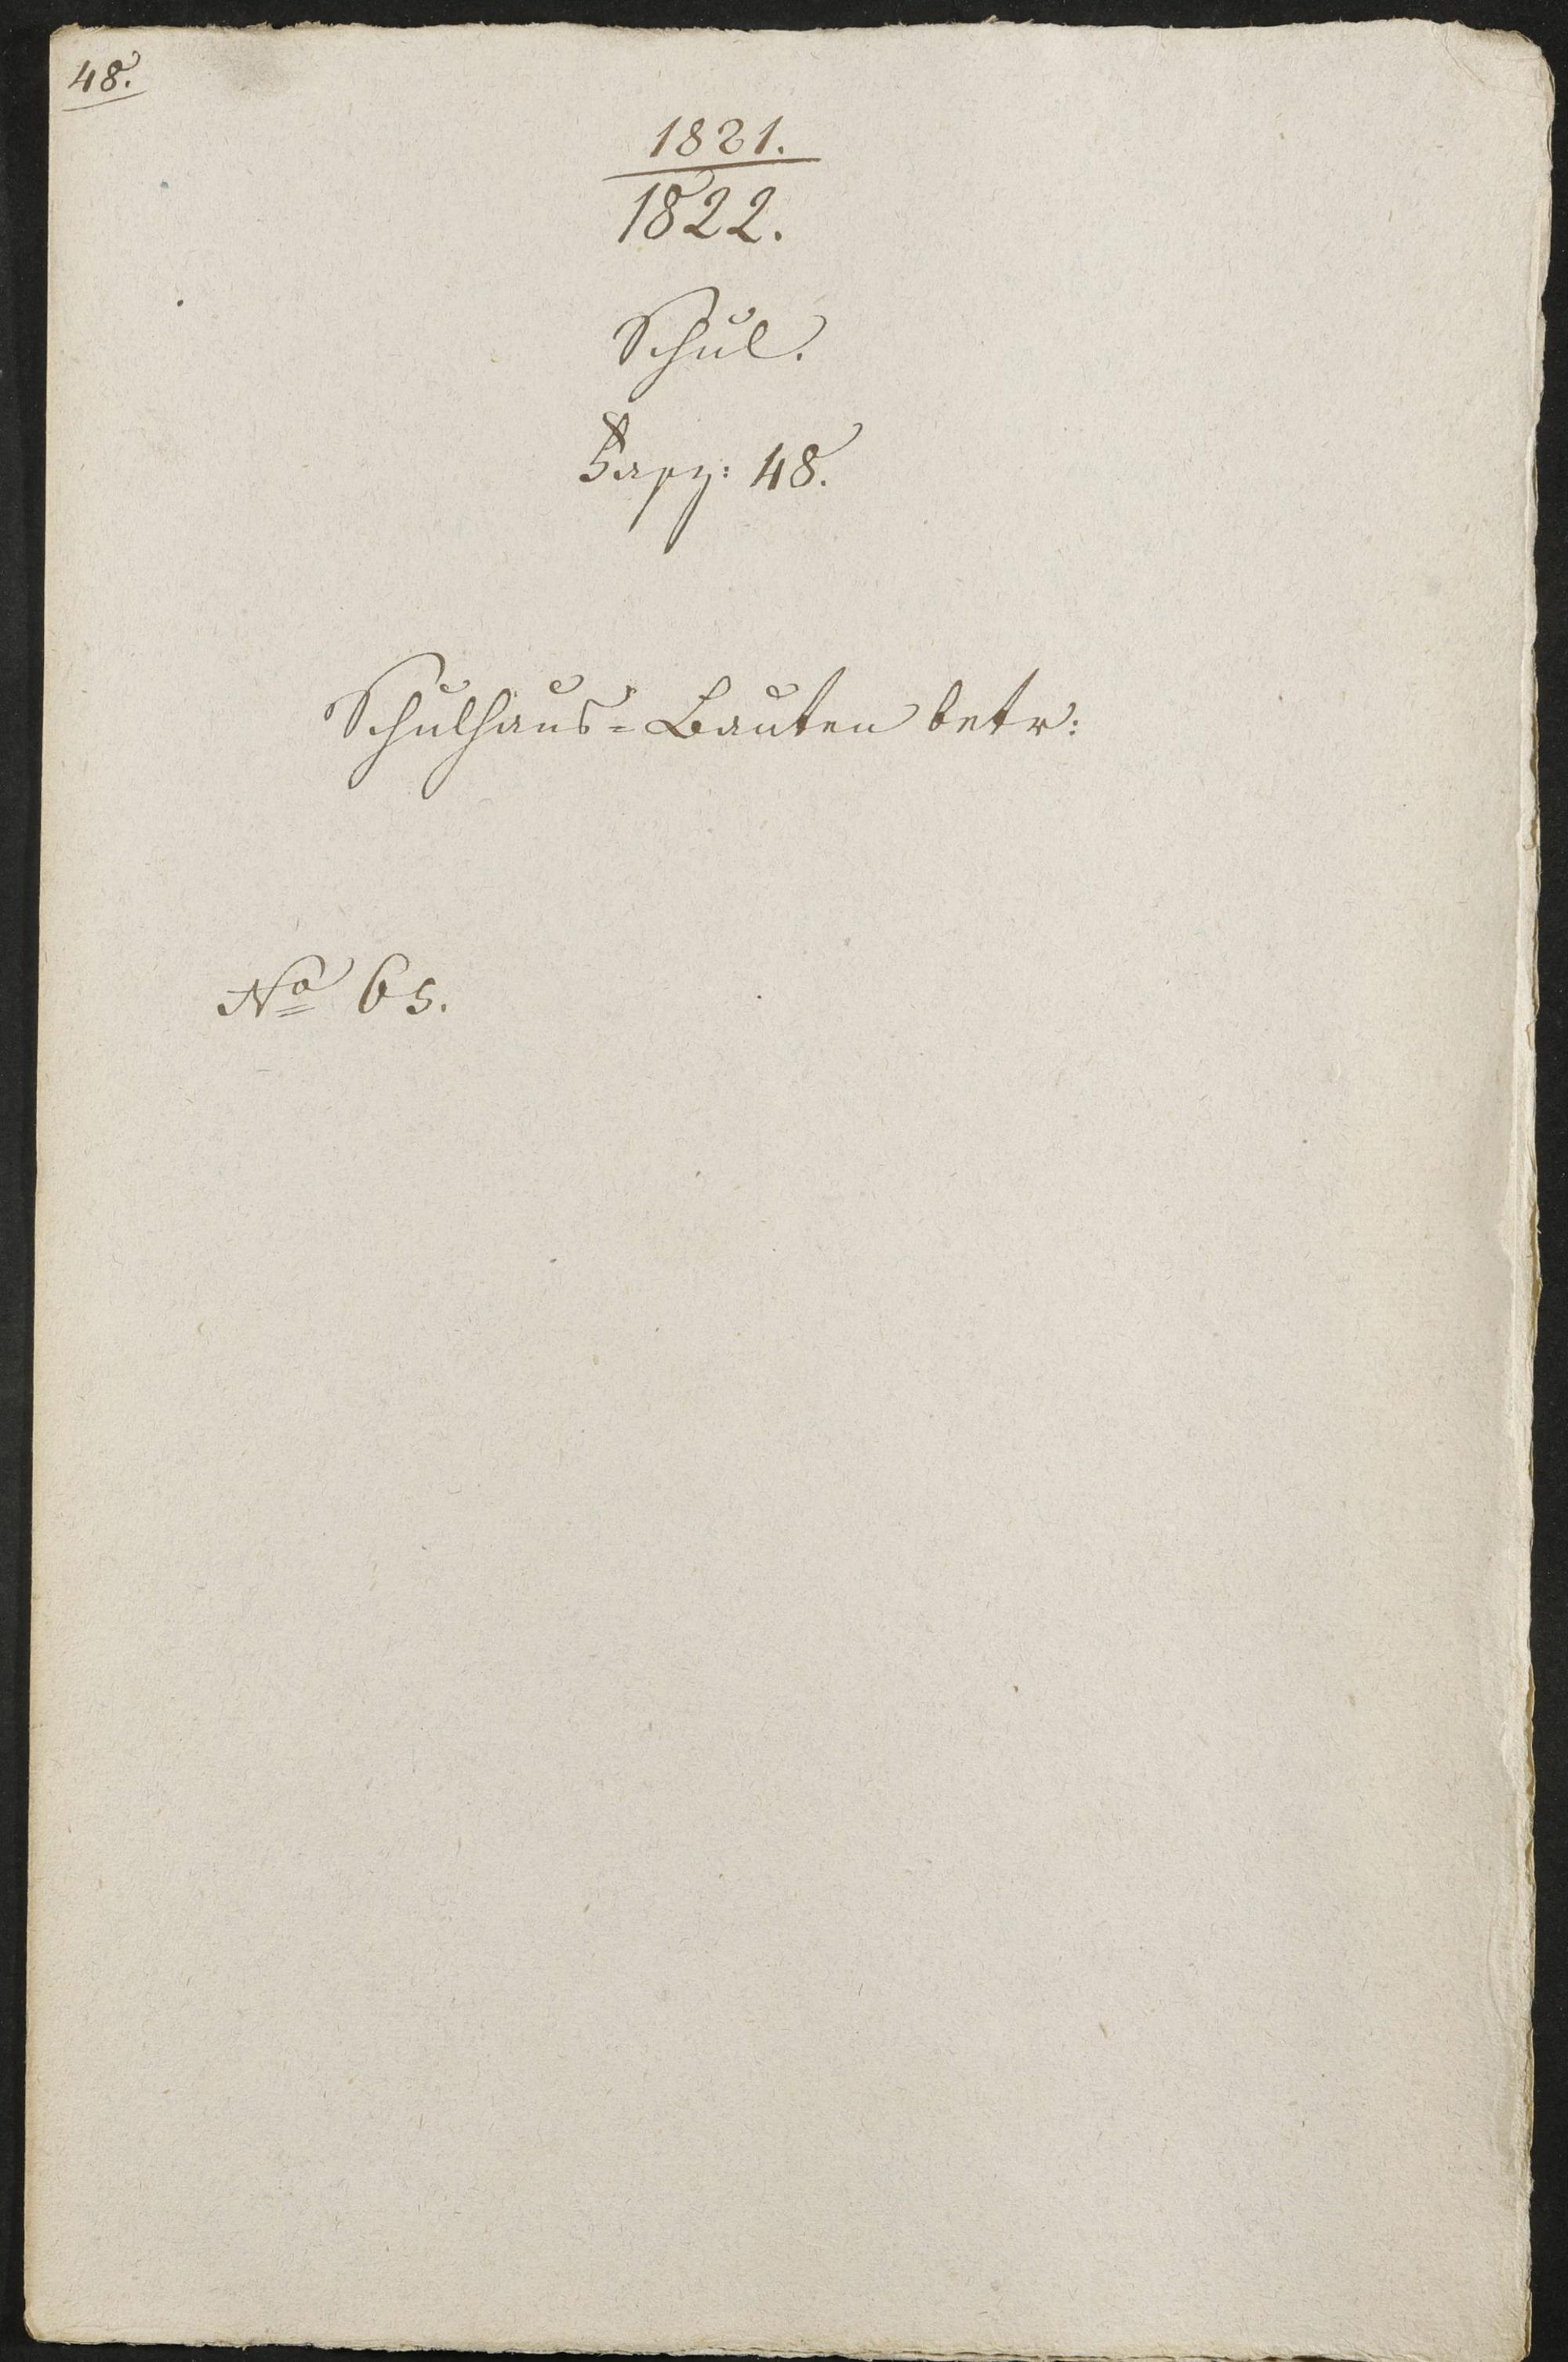 48.
1821.
1822.
Schul.
Fasz: 48.
Schulhaus=Bauten betr:
No 65.